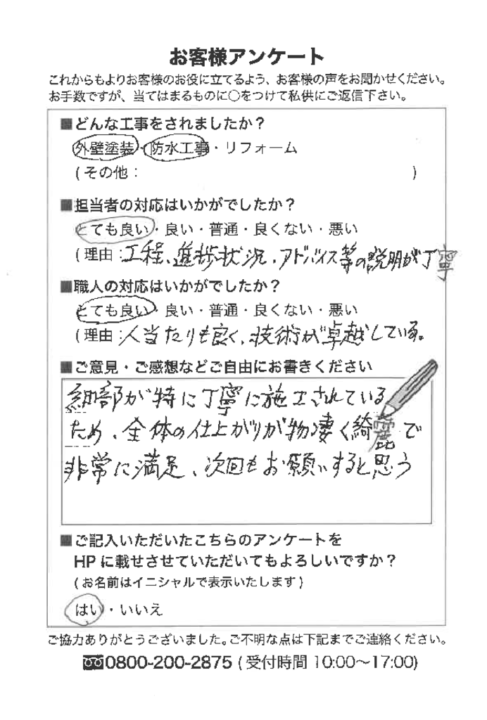 お客様アンケート
これからもよりお客様のお役に立てるよう、お客様の声をお聞かせください。
お手数ですが、当てはまるものに○をつけて私供にご返信下さい。
■どんな工事をされましたか?
外壁塗装・防水工事・リフォーム
(その他: )
■担当者の対応はいかがでしたか?
とても良い・良い・普通・良くない・悪い
(理由:工程、進捗状況、アドバイス等の説明が丁寧
■職人の対応はいかがでしたか?
とても良い・良い・普通・良くない・悪い
(理由:人当たりも良く、技術が卓越している。
■ご意見・ご感想などご自由にお書きください
細部が特に丁寧に施工されている
ため、全体の仕上がりが物凄く綺麗で
非常に満足、次回もお願いすると思う
■ご記入いただいたこちらのアンケートを
HPに載せさせていただいてもよろしいですか?
(お名前はイニシャルで表示いたします)
はい・いいえ
ご協力ありがとうございました。ご不明な点は下記までご連絡ください。
0800-200-2875 (受付時間 10:00〜17:00)